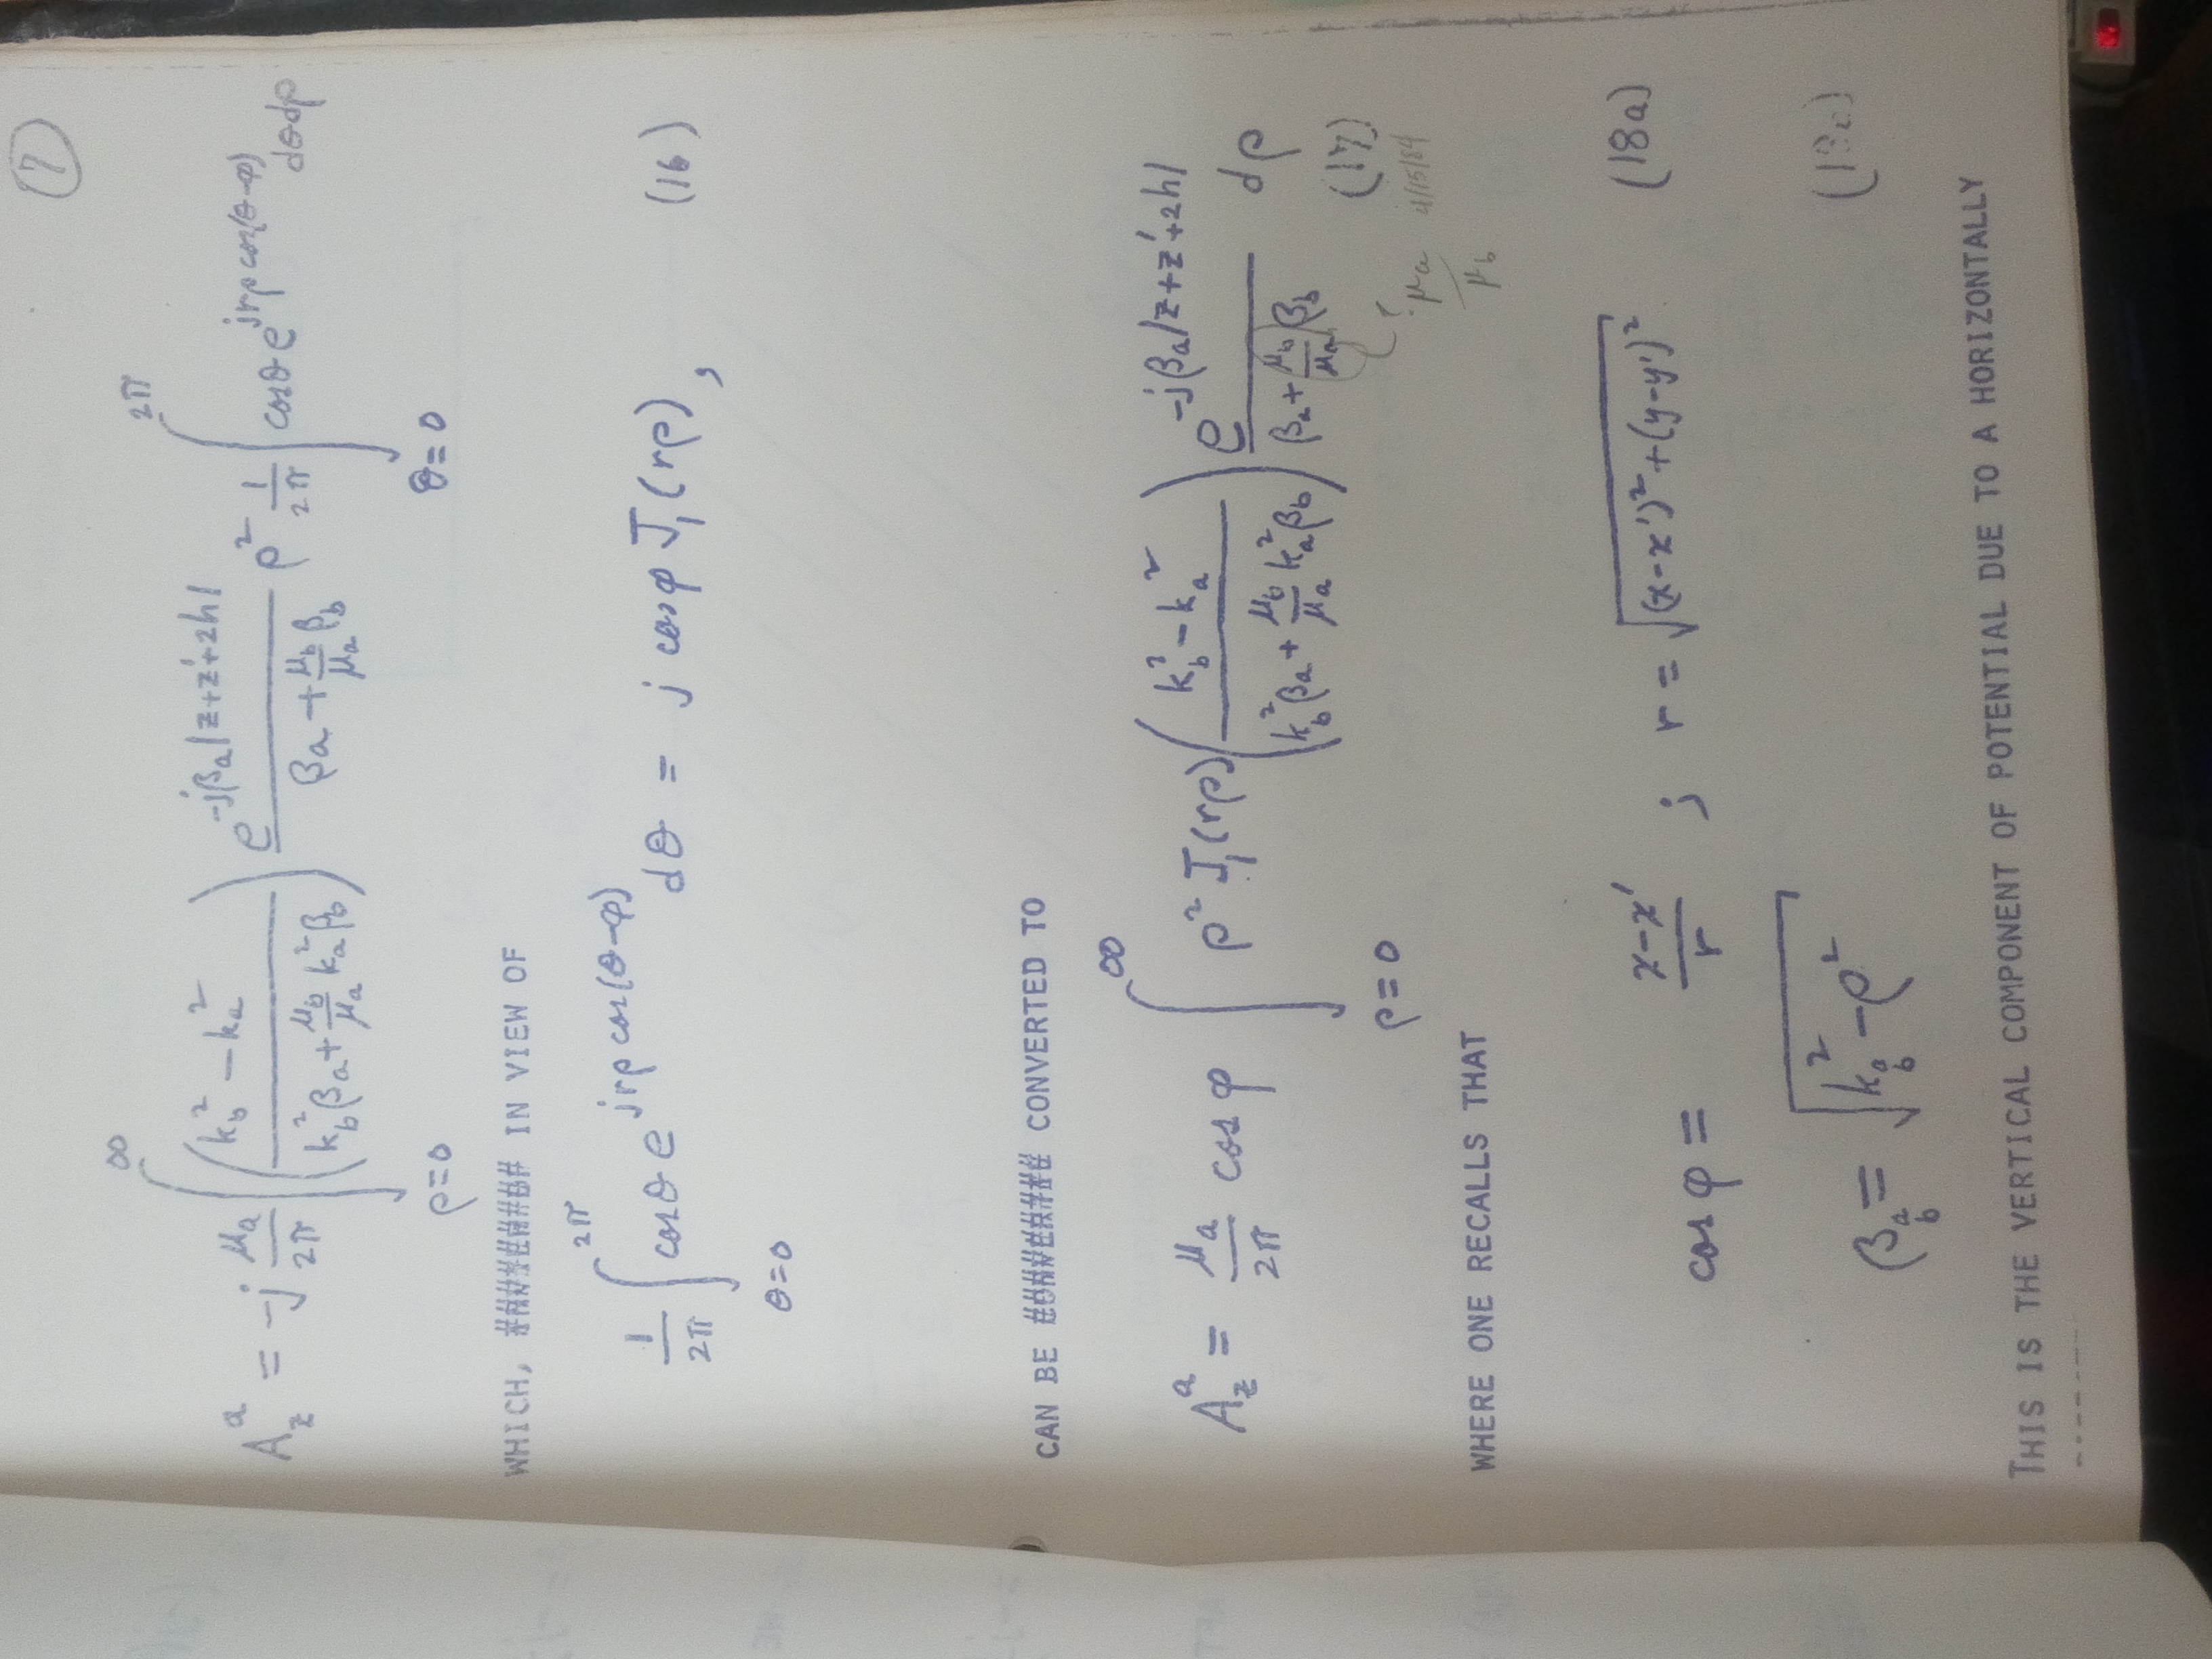 (7)
A_z^a = -j \frac{μ_a}{2π} \int_{ρ=0}^{∞} \left( \frac{k_b^2 - k_a^2}{k_b^2 β_a + \frac{μ_b}{μ_a} k_a^2 β_b} \right) \frac{e^{-jβ_a|z+z'+2h|}}{β_a + \frac{μ_b}{μ_a} β_b} ρ^2 \frac{1}{2π} \int_{θ=0}^{2π} cosθ e^{jrρ cos(θ-φ)} dθdρ
WHICH, IN VIEW OF
\frac{1}{2π} \int_{θ=0}^{2π} cosθ e^{jrρ cos(θ-φ)} dθ = j cosφ J_1(rρ) , (16)
CAN BE CONVERTED TO
A_z^a = \frac{μ_a}{2π} cosφ \int_{ρ=0}^{∞} ρ^2 J_1(rρ) \left( \frac{k_b^2 - k_a^2}{k_b^2 β_a + \frac{μ_b}{μ_a} k_a^2 β_b} \right) \frac{e^{-jβ_a|z+z'+2h|}}{β_a + \frac{μ_b}{μ_a} β_b} dρ
(17)
\frac{μ_a}{μ_b} 4/15/84
WHERE ONE RECALLS THAT
cosφ = \frac{x-x'}{r} ; r = \sqrt{(x-x')^2 + (y-y')^2} (18a)
β_{a b} = \sqrt{k_{a b}^2 - ρ^2}
THIS IS THE VERTICAL COMPONENT OF POTENTIAL DUE TO A HORIZONTALLY